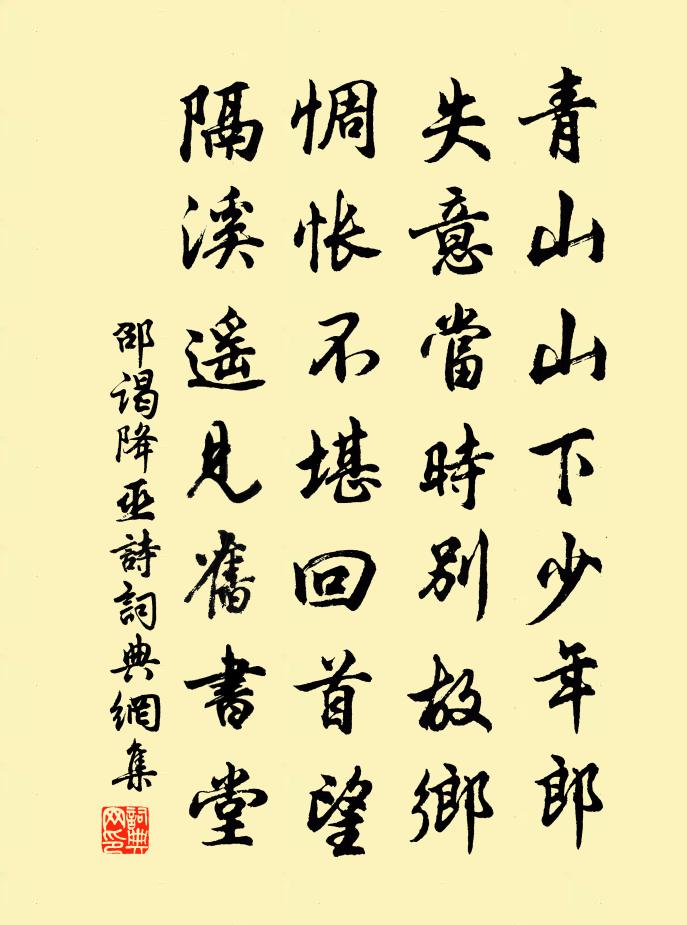 青山山下少年郎
失意當時別故鄉
惆悵不堪回首望
隔溪遙見舊書堂
邵謁降巫詩詞典網集
詞典網印